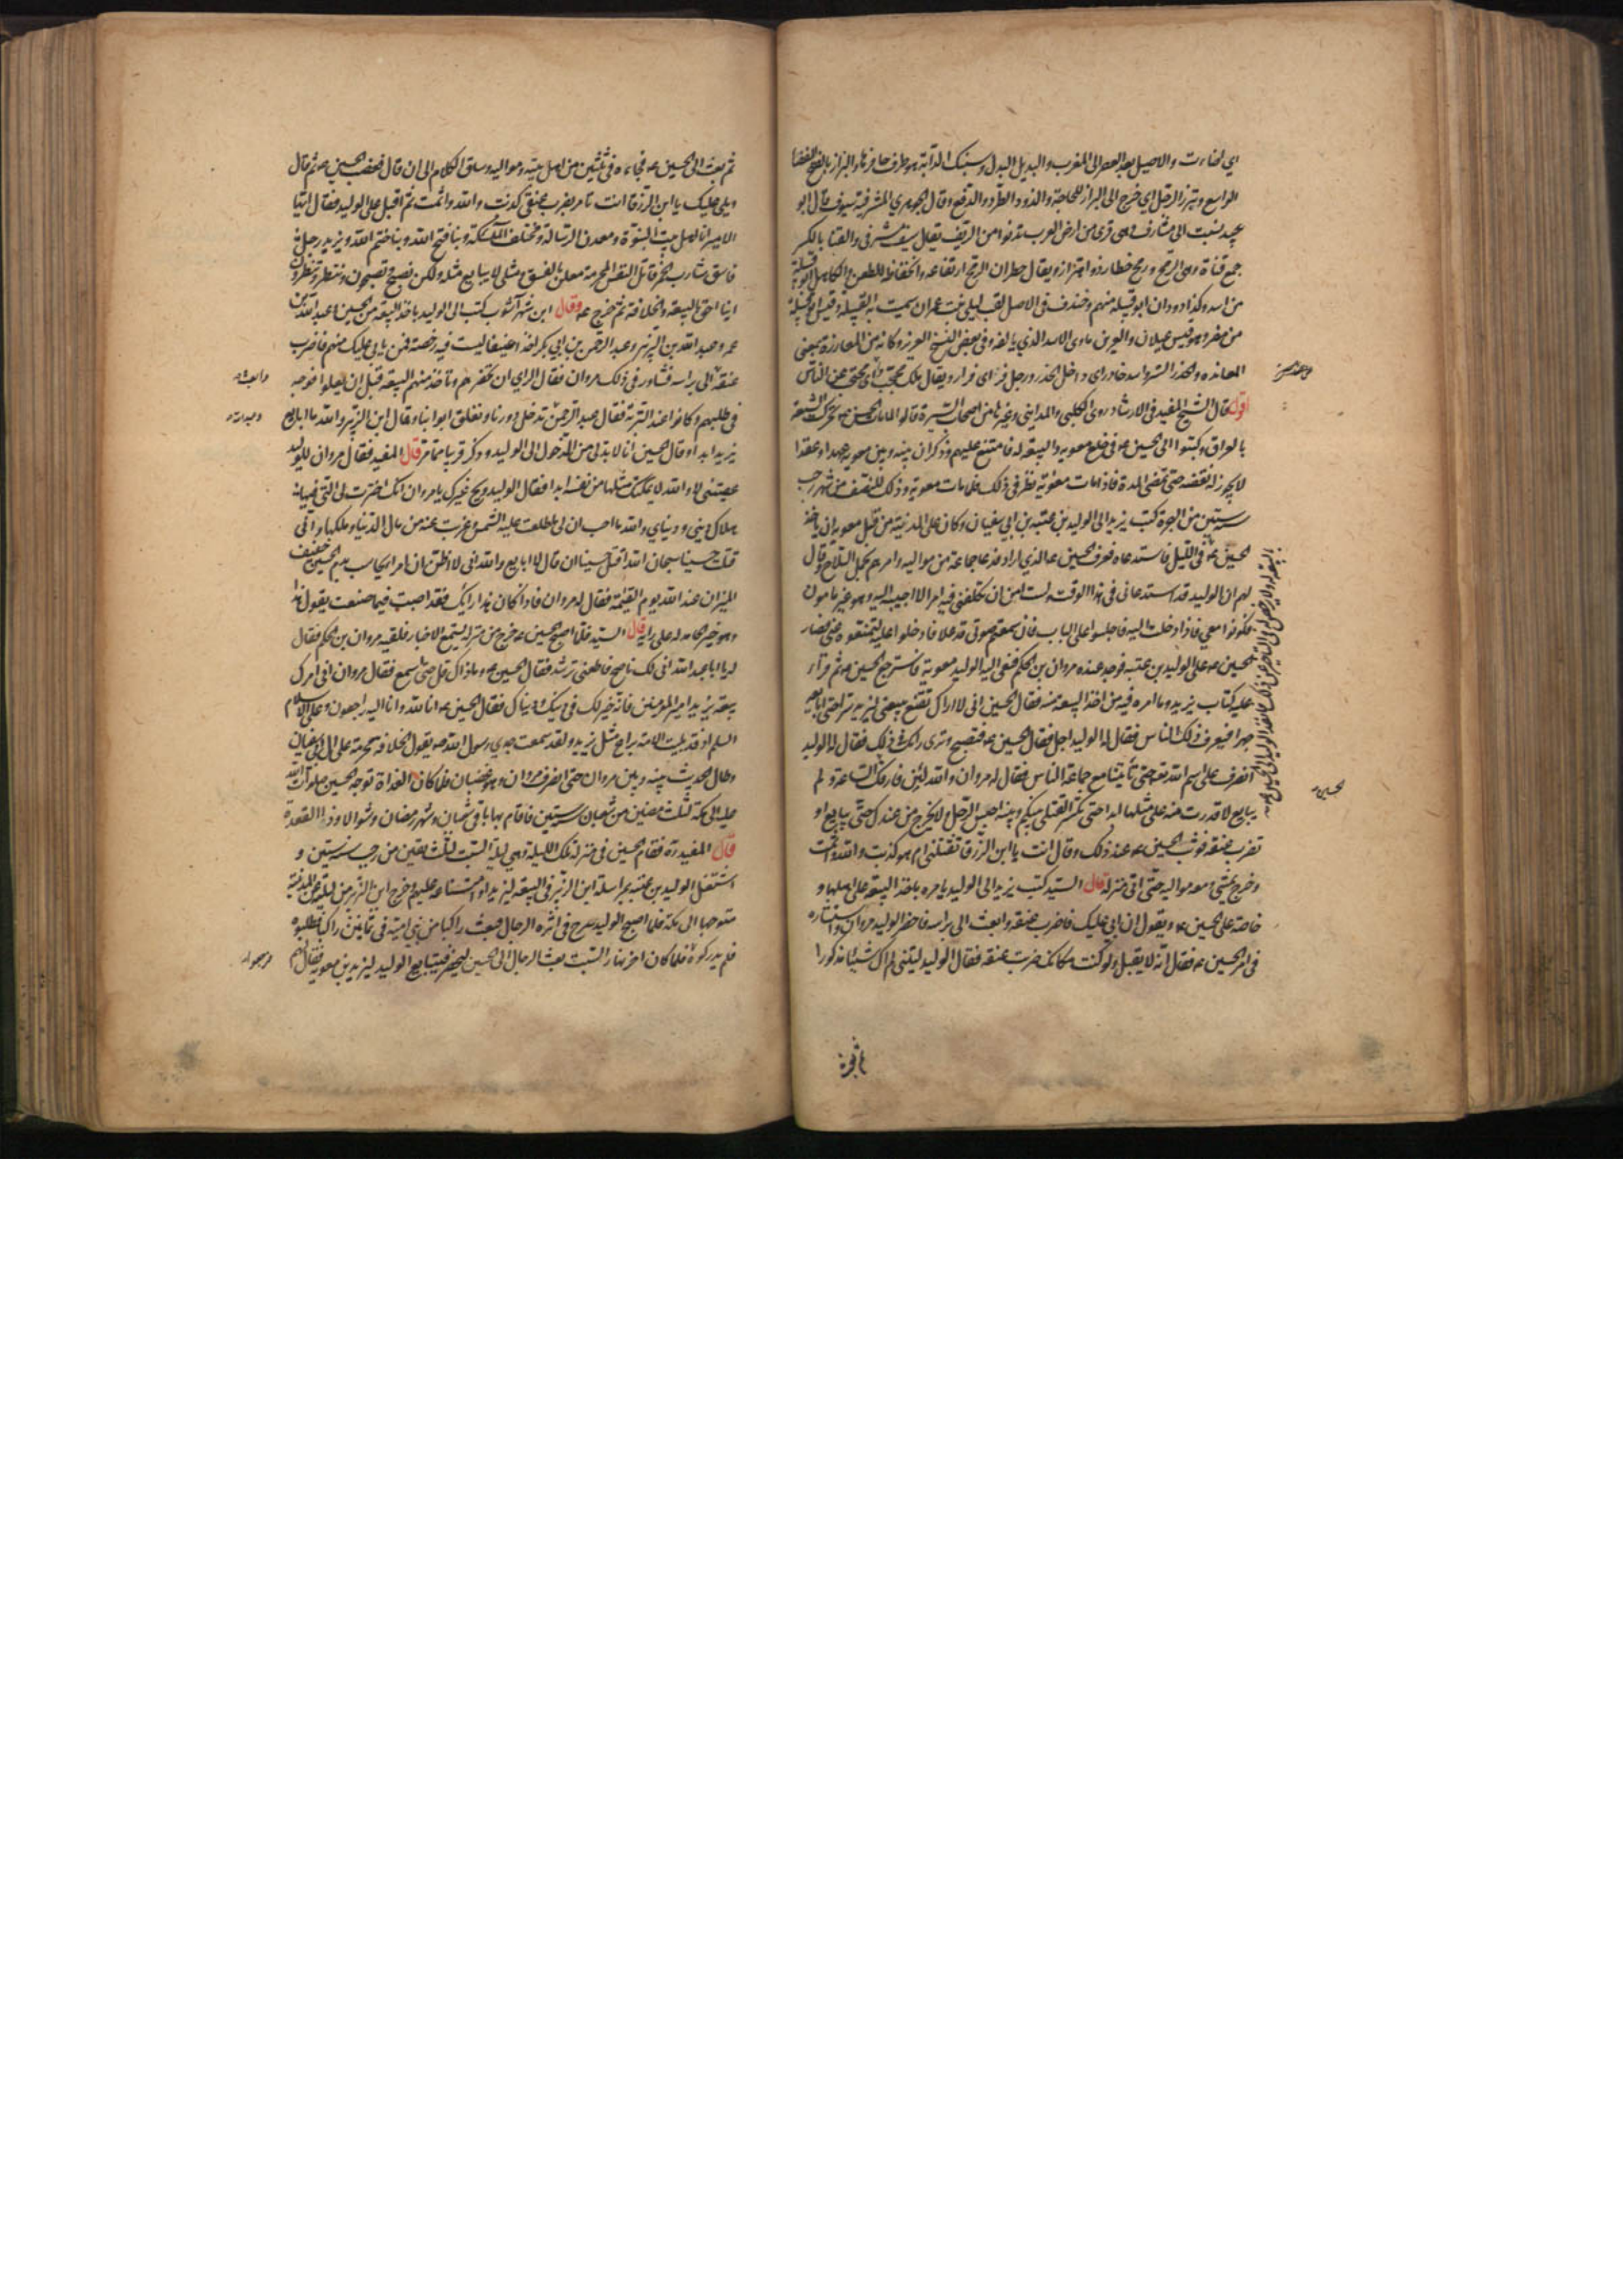 اي اضاءت والاصيل بعد العصر الى المغرب والبديل البدل وسنبك الدابة هو طرف حافرها والبراز بالفتح الفضا
الواسع وتبرز الرجل اي خرج الى البراز للحاجة والذود الطرد والدفع وقال الجوهري المشرفية سيوف قال ابو
عبيد نسبت الى مشارف وهي قرى من ارض العرب تدنو من الريف يقال سيف مشرفي والقنا بالكسر
جمع قناة وهي الرمح ورمح خطار ذو اهتزاز ويقال خطران الرمح ارتفاعه وانخفاظه للطعن والكاهل ابو قبيلة
من اسد وكذا دودان ابو قبيلة منهم وخندف في الاصل لقب ليلى بنت عمران سميت به القبيلة وقيس ابو قبيلة
من مضر وهو قيس عيلان والعرين ماوى الاسد الذي يالفه وفي بعض النسخ العزيز وكانه من المعازة بمعنى
المعانده والخدر الستر واسد خادر اي داخل الخدر ورجل فر اي فرار ويقال ملك محجب اي محتجب عن الناس
اقول قال الشيخ المفيد في الارشاد روى الكلبي والمدايني وغيرهما من اصحاب السيرة قالوا لما مات الحسن ع تحركت الشيعة
بالعراق وكتبوا الى الحسين ع في خلع معوية والبيعة له فامتنع عليهم وذكر ان بينه وبين معوية عهدا وعقدا
لا يجوز له نقضه حتى تمضي المدة فاذا مات معوية نظر في ذلك فلما مات معوية وذلك للنصف من شهر رجب
سنة ستين من الهجرة كتب يزيد الى الوليد بن عتبة بن ابي سفيان وكان على المدينة من قبل معوية ان ياخذ
الحسين ع في الليل فاستدعاه فعرف الحسين ع الذي اراد فدعا جماعة من مواليه وامرهم بحمل السلاح وقال
لهم ان الوليد قد استدعاني في هذا الوقت ولست امن ان يكلفني فيه امرا لا اجيب اليه وهو غير مامون
فكونوا معي فاذا دخلت اليه فاجلسوا على الباب فان سمعتم صوتي قد علا فادخلوا عليه لتمنعوه عني فصار
الحسين ع على الوليد بن عتبة فوجد عنده مروان بن الحكم فنعى اليه الوليد معوية فاسترجع الحسين ع ثم قرأ
عليه كتاب يزيد وما امره فيه من اخذ البيعة منه فقال الحسين اني لا اراك تقنع ببيعتي ليزيد سرا حتى ابايعه
جهرا فيعرف ذلك الناس فقال له الوليد اجل فقال الحسين ع فتصبح وترى رايك في ذلك فقال له الوليد
انصرف على اسم الله تع حتى تأتينا مع جماعة الناس فقال له مروان والله لئن فارقك الساعة ولم
يبايع لا قدرت منه على مثلها ابدا حتى تكثر القتلى بينكم وبينه احبس الرجل ولا يخرج من عندك حتى يبايع او
تضرب عنقه فوثب الحسين ع عند ذلك وقال انت يا ابن الزرقا تقتلني ام هو كذبت والله واثمت
وخرج يمشي ومعه مواليه حتى اتى منزله قال السيد كتب يزيد الى الوليد يامره باخذ البيعة على اهلها و
خاصة على الحسين ع ويقول ان ابى عليك فاضرب عنقه وابعث الى براسه فاحضر الوليد مروان واستشاره
في امر الحسين ع فقال انه لا يقبل ولو كنت مكانك ضربت عنقه فقال الوليد ليتني لم اك شيئا مذكورا
البيعة له ولا يرخص له في التاخير عن ذلك فانفذ الوليد الى الحسين ع
الحسين
ثم بعث الى الحسين ع فجاءه في ثلثين من اهل بيته ومواليه وساق الكلام الى ان قال فغضب الحسين ع ثم قال
ويلي عليك يا ابن الزرقا انت تامر بضرب عنقي كذبت والله واثمت ثم اقبل على الوليد فقال ايها
الامير انا اهل بيت النبوة ومعدن الرسالة ومختلف الملئكة وبنا فتح الله وبنا ختم الله ويزيد رجل
فاسق شارب الخمر قاتل النفس المحرمة معلن بالفسق ومثلي لا يبايع مثله ولكن نصبح وتصبحون وننتظر وتنتظرون
اينا احق بالبيعة والخلافة ثم خرج ع وقال ابن شهر آشوب كتب الى الوليد باخذ البيعة من الحسين ع وعبد الله بن
عمر وعبد الله بن الزبير وعبد الرحمن بن ابي بكر اخذا عنيفا ليست فيه رخصة فمن يابى عليك منهم فاضرب
عنقه الى براسه فشاور في ذلك مروان فقال الراي ان تحضرهم وتاخذ منهم البيعة قبل ان يعلموا فوجه
في طلبهم وكانوا عند التربة فقال عبد الرحمن ندخل دورنا ونغلق ابوابنا وقال ابن الزبير والله ما ابايع
يزيد ابدا وقال الحسين انا لا بد لي من الدخول الى الوليد وذكر قريبا مما مر قال المفيد فقال مروان للوليد
عصيتني لا والله لا يمكنك مثلها من نفسه ابدا فقال الوليد ويح غيرك يا مروان انك اخترت لي التي فيها
هلاك ديني ودنياي والله ما احب ان لي ما طلعت عليه الشمس وغربت عنه من مال الدنيا وملكها واني
قتلت حسينا سبحان الله اقتل حسينا ان قال لا ابايع والله اني لا اظن ان امرا يحاسب بدم الحسين خفيف
الميزان عند الله يوم القيمة فقال له مروان فاذا كان هذا رايك فقد اصبت فيما صنعت يقول هذا
وهو غير الحامد له على رايه قال السيد فلما اصبح الحسين ع خرج من منزله يستمع الاخبار فلقيه مروان بن الحكم فقال
له يا ابا عبد الله اني لك ناصح فاطعني ترشد فقال الحسين ع وما ذاك قل حتى اسمع فقال مروان اني امرك
ببيعة يزيد امير المؤمنين فانه خير لك في دينك ودنياك فقال الحسين ع انا لله وانا اليه راجعون وعلى الاسلام
السلم اذ قد بليت الامة براع مثل يزيد ولقد سمعت جدي رسول الله ص يقول الخلافة محرمة على ال ابي سفيان
وطال الحديث بينه وبين مروان حتى انصرف مروان وهو غضبان فلما كان الغداة توجه الحسين صلوات الله
عليه الى مكة لثلث مضين من شعبان سنة ستين فاقام بها باقي شعبان وشهر رمضان وشوالا وذا القعدة
قال المفيد ره فقام الحسين في منزله تلك الليلة وهي ليلة السبت لثلث بقين من رجب سنة ستين و
اشتغل الوليد بن عتبة بمراسلة ابن الزبير في البيعة ليزيد وامتناعه عليهم وخرج ابن الزبير من ليلته عن المدينة
متوجها الى مكة فلما اصبح الوليد سرح في اثره الرجال فبعث راكبا من بني امية في ثمانين راكبا فطلبوه
فلم يدركوه فلما كان اخر نهار السبت بعث الرجال الى الحسين ليحضر فيبايع الوليد ليزيد بن معوية فقال لهم
وابعث